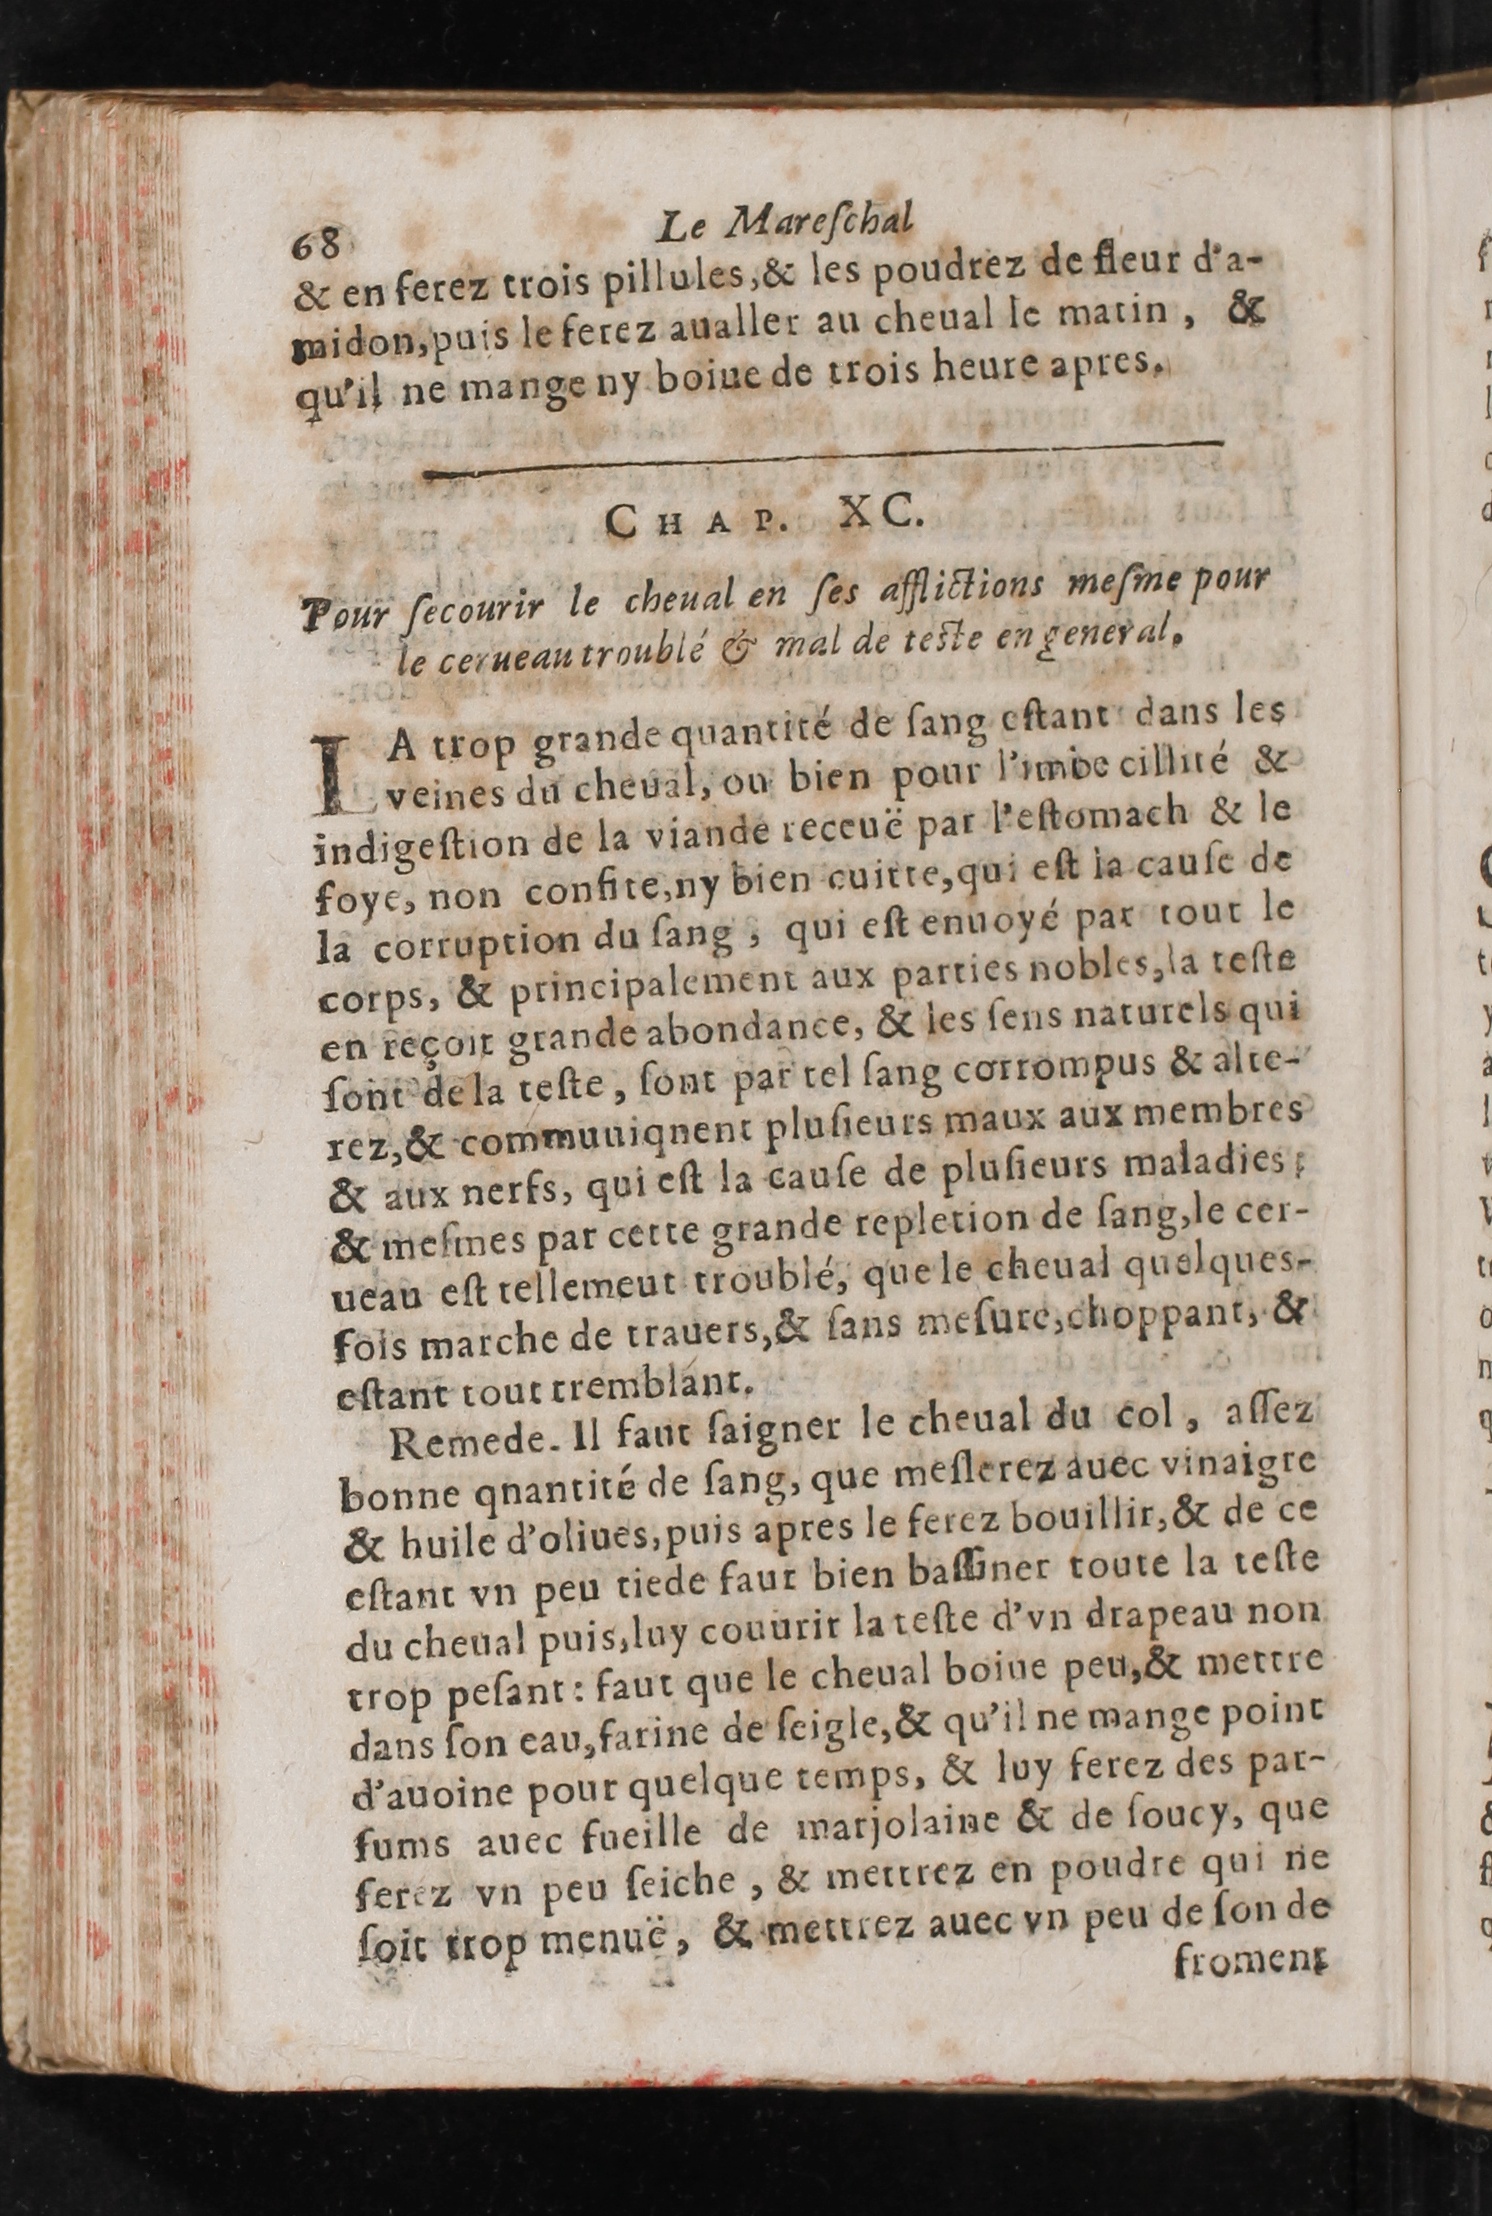 68 Le Mareſchal
& en ferez trois pillules,& les poudrez de fleur d'a-
midon,puis le ferez aualler au cheual le matin , &
qu'il ne mange ny boiue de trois heure apres.
CHAP. XC.
Pour ſecourir le cheual en ſes afflictions meſme pour
le cerueau troublé & mal de teſte en general.
LA trop grande quantité de ſang eſtant dans les
veines du cheual, ou bien pour l'imbe cillité &
indigeſtion de la viande receuë par l'eſtomach & le
foye, non confite,ny bien cuitte,qui eſt la cauſe de
la corruption du ſang , qui eſt enuoyé par tout le
corps, & principalement aux parties nobles,la teſte
en reçoit grande abondance, & les ſens naturels qui
ſont de la teſte , ſont par tel ſang corrompus & alte-
rez,& commuuiqnent pluſieurs maux aux membres
& aux nerfs, qui eſt la cauſe de pluſieurs maladies ;
& meſmes par cette grande repletion de ſang,le cer-
ueau eſt tellemeut troublé, que le cheual quelques-
fois marche de trauers,& ſans meſure,choppant, &
eſtant tout tremblant.
Remede. Il faut ſaigner le cheual du col , aſſez
bonne qnantité de ſang, que meſlerez auec vinaigre
& huile d'oliues,puis apres le ferez bouillir,& de ce
eſtant vn peu tiede faut bien baſſiner toute la teſte
du cheual puis,luy couurir la teſte d'vn drapeau non
trop peſant : faut que le cheual boiue peu,& mettre
dans ſon eau,farine de ſeigle,& qu'il ne mange point
d'auoine pour quelque temps, & luy ferez des par-
fums auec fueille de marjolaine & de ſoucy, que
ferez vn peu ſeiche , & mettrez en poudre qui ne
ſoit trop menuë, & mettrez auec vn peu de ſon de
froment